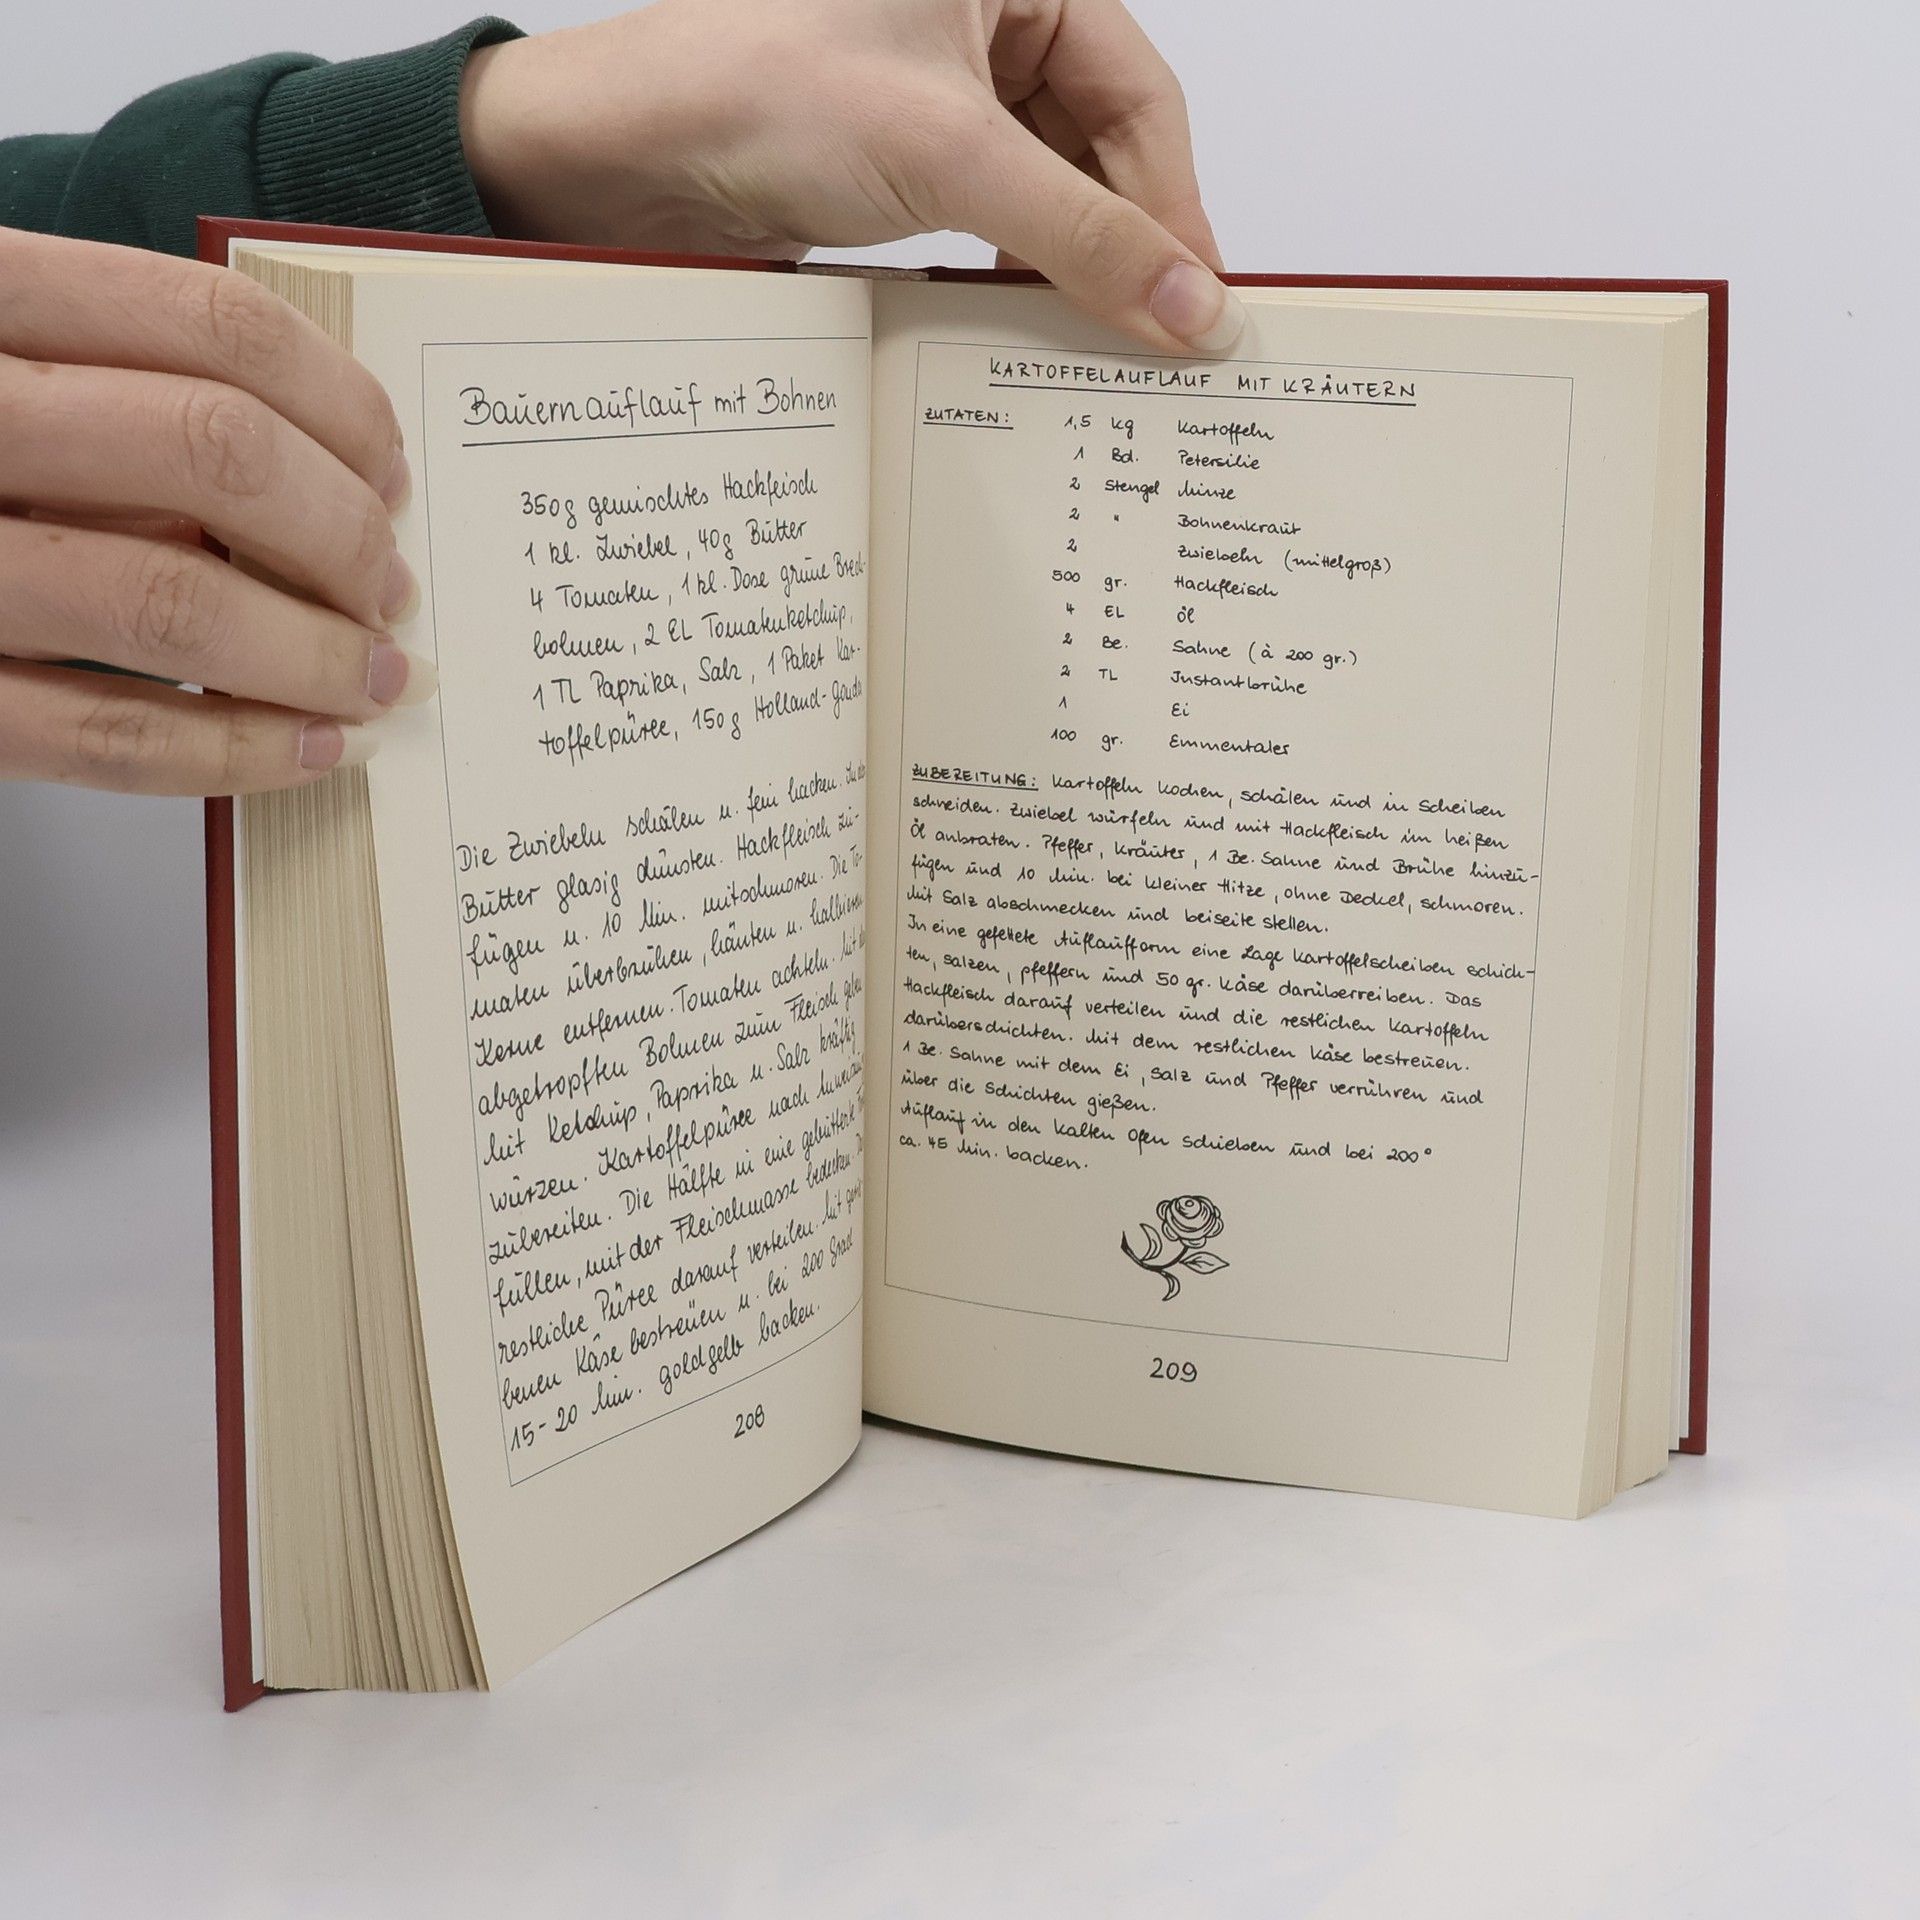 Bauernauflauf mit Bohnen
350g gemischtes Hackfleisch
1 kl. Zwiebel, 40g Butter
4 Tomaten, 1 kl. Dose grüne Brech-
bohnen, 2 EL Tomatenketchup,
1 TL Paprika, Salz, 1 Paket Kar-
toffelpüree, 150g Holland-Gouda
Die Zwiebeln schälen u. fein hacken. In der
Butter glasig dünsten. Hackfleisch zu-
fügen u. 10 Min. mitschmoren. Die To-
maten überbrühen, häuten u. halbieren
Kerne entfernen. Tomaten achteln. Mit den
abgetropften Bohnen zum Fleisch geben
Mit Ketchup, Paprika u. Salz kräftig
würzen. Kartoffelpüree nach
zubereiten. Die Hälfte in eine gebutterte
füllen, mit der Fleischmasse bedecken.
restliche Püree darauf verteilen. Mit
benen Käse bestreuen u. bei 200 Grad
15-20 Min. goldgelb backen.
208
KARTOFFELAUFLAUF MIT KRÄUTERN
ZUTATEN:
1,5 kg Kartoffeln
1 Bd. Petersilie
2 Stengel Minze
2 " Bohnenkraut
2 Zwiebeln (mittelgroß)
500 gr. Hackfleisch
4 EL Öl
2 Be. Sahne (à 200 gr.)
2 TL Instantbrühe
1 Ei
100 gr. Emmentaler
ZUBEREITUNG: Kartoffeln kochen, schälen und in Scheiben
schneiden. Zwiebel würfeln und mit Hackfleisch im heißen
Öl anbraten. Pfeffer, Kräuter, 1 Be. Sahne und Brühe hinzu-
fügen und 10 Min. bei kleiner Hitze, ohne Deckel, schmoren.
Mit Salz abschmecken und beiseite stellen.
In eine gefettete Auflaufform eine Lage Kartoffelscheiben schich-
ten, salzen, pfeffern und 50 gr. Käse darüberreiben. Das
Hackfleisch darauf verteilen und die restlichen Kartoffeln
darüberschichten. Mit dem restlichen Käse bestreuen.
1 Be. Sahne mit dem Ei, Salz und Pfeffer verrühren und
über die Schichten gießen.
Auflauf in den kalten Ofen schieben und bei 200°
ca. 45 Min. backen.
209